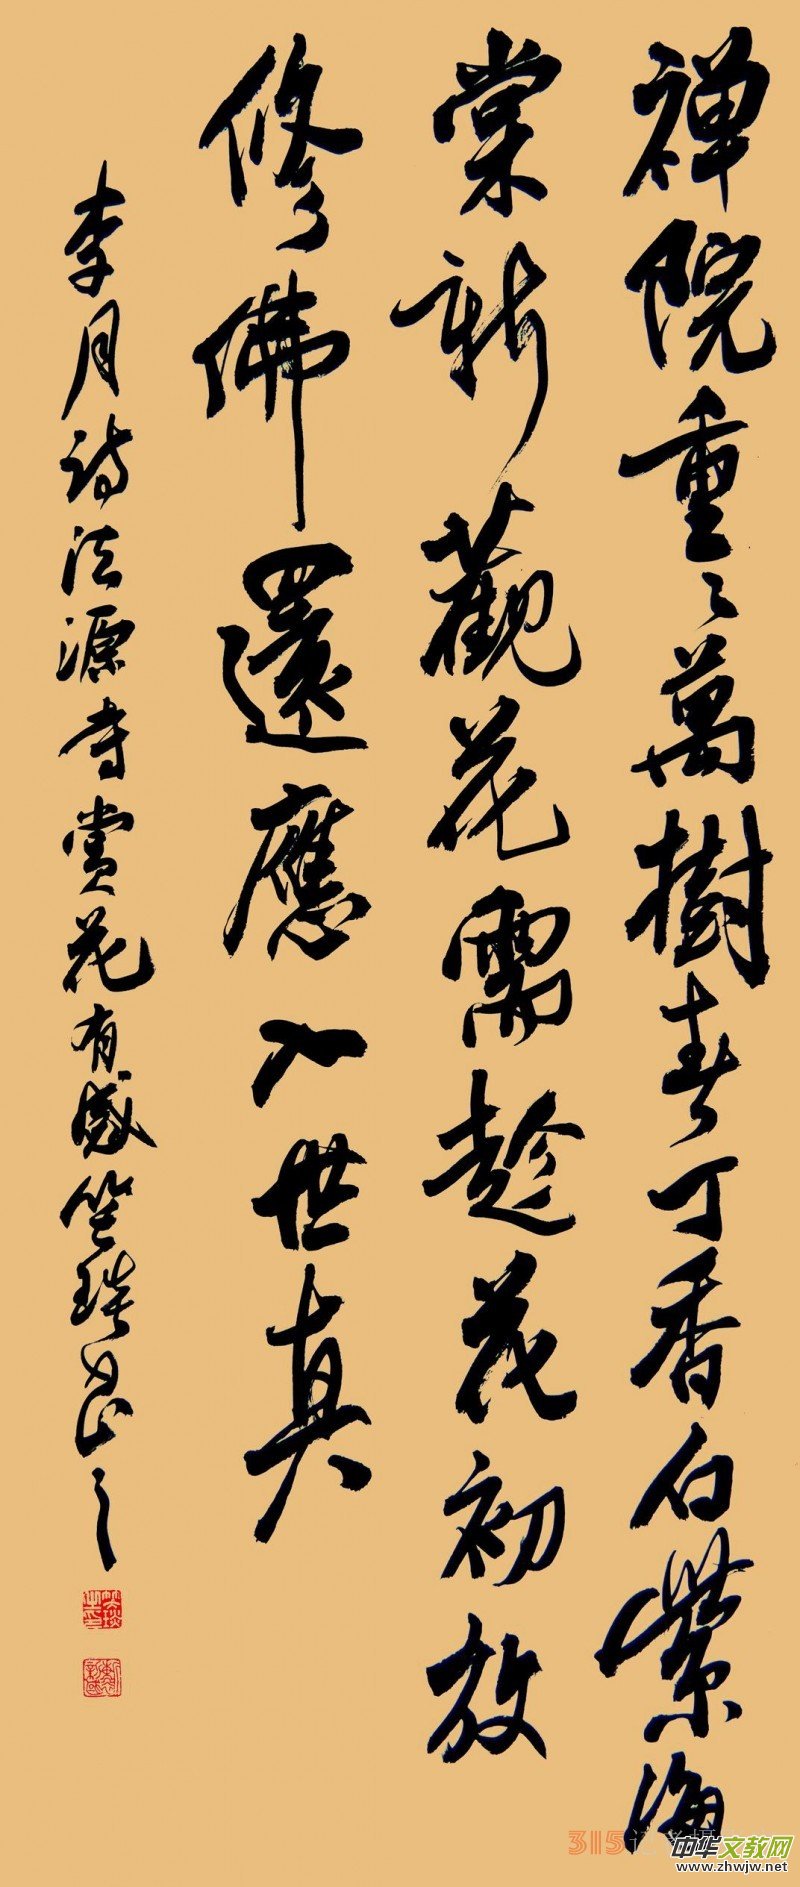 禅院重々萬樹春丁香白紫海
棠新觀花需趁花初放
修佛還應入世真
李月詩法源寺賞花有感笠琰昌之
315记者摄
中华文教网
www.zhwjw.net